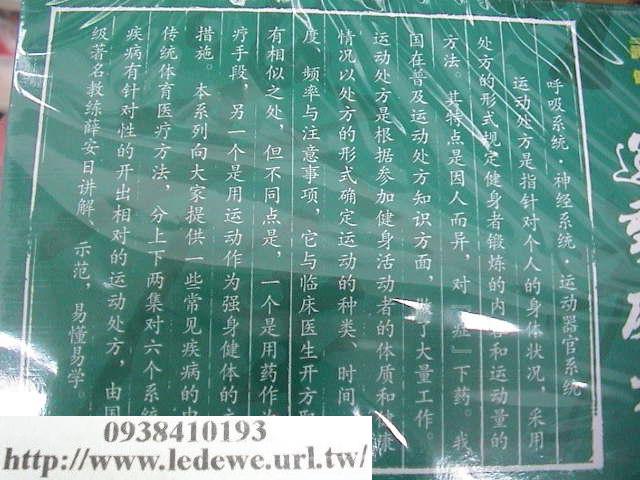 呼吸系统·神经系统·运动器官系统
运动处方是指针对个人的身体状况，采用
处方的形式规定健身者锻炼的内容和运动量的
方法。其特点是因人而异，对「症」下药。我
国在普及运动处方知识方面，做了大量工作。
运动处方是根据参加健身活动者的体质和健康
情况以处方的形式确定运动的种类、时间
度、频率与注意事项，它与临床医生开方取
有相似之处，但不同点是，一个是用药作为
疗手段，另一个是用运动作为强身健体的
措施。本系列向大家提供一些常见疾病的中
传统体育医疗方法，分上下两集对六个系统
疾病有针对性的开出相对的运动处方，由国
级著名教练薛安日讲解、示范，易懂易学。
0938410193
http://www.ledewe.url.tw/